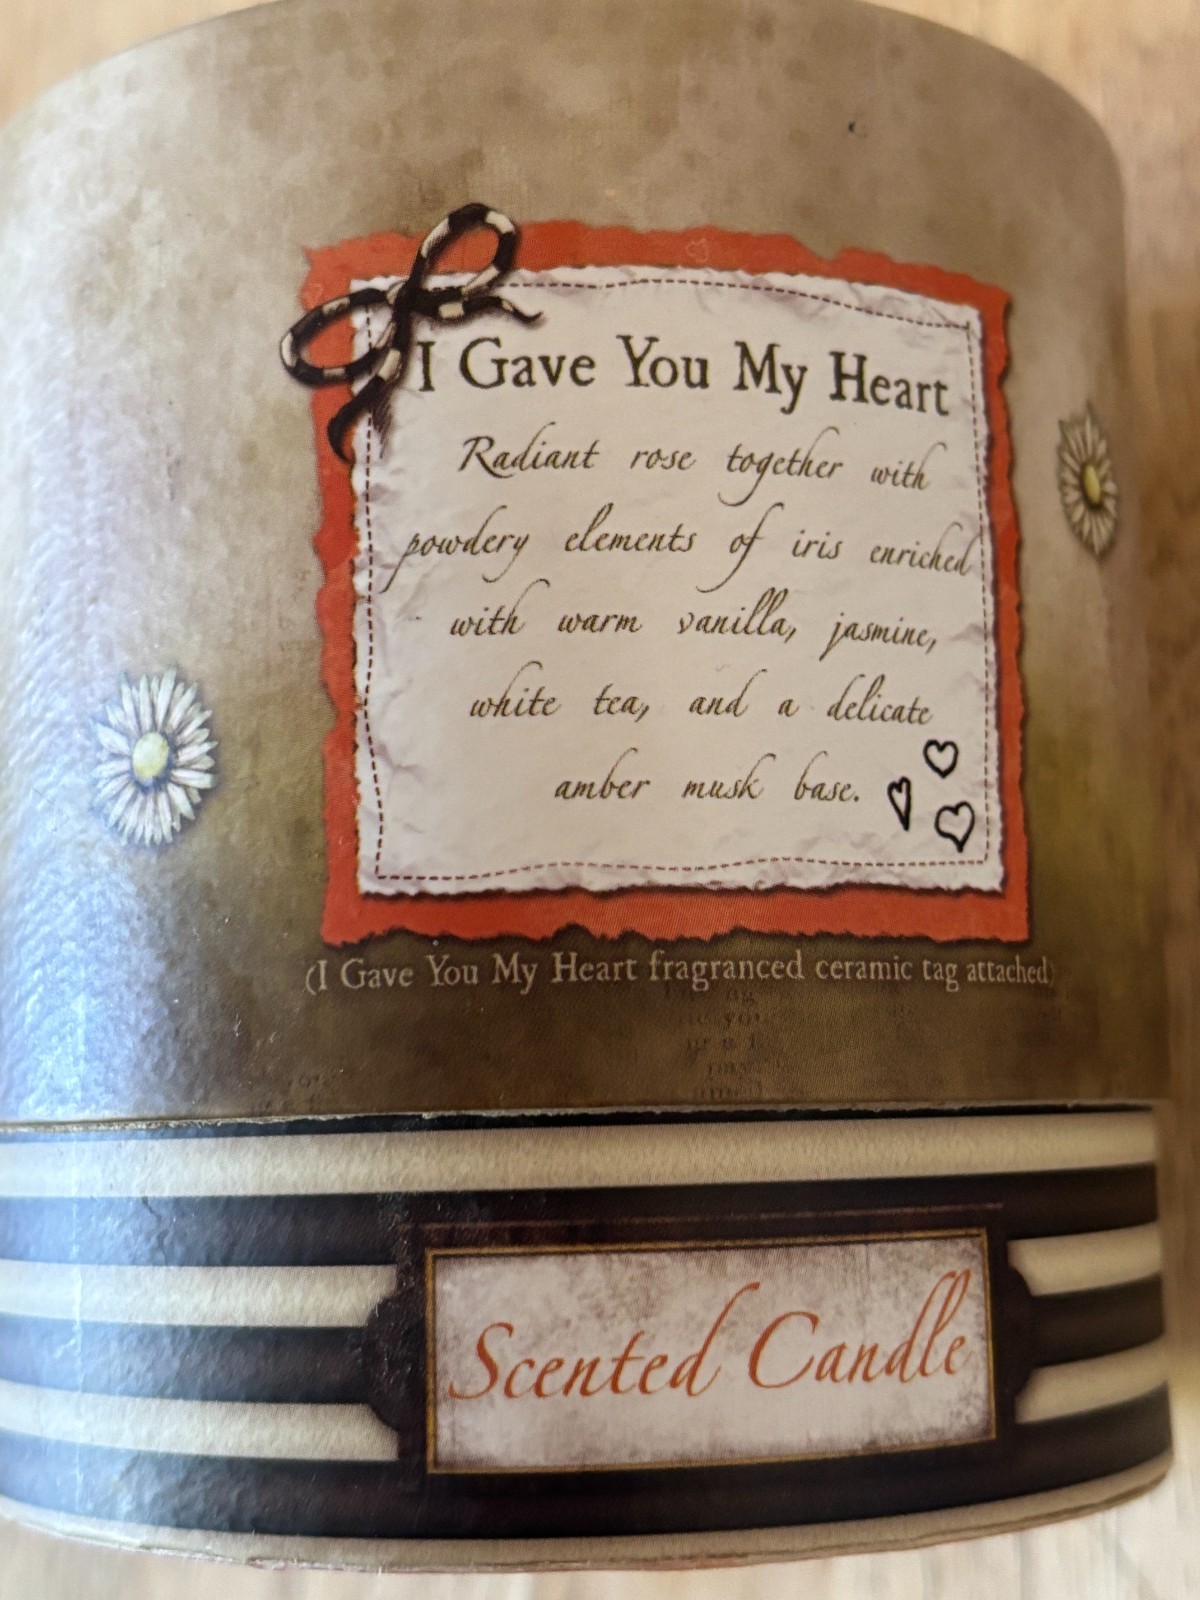 I Gave You My Heart
Radiant rose together with
powdery elements of iris enriched
with warm vanilla, jasmine,
white tea, and a delicate
amber musk base.
(I Gave You My Heart fragranced ceramic tag attached)
Scented Candle